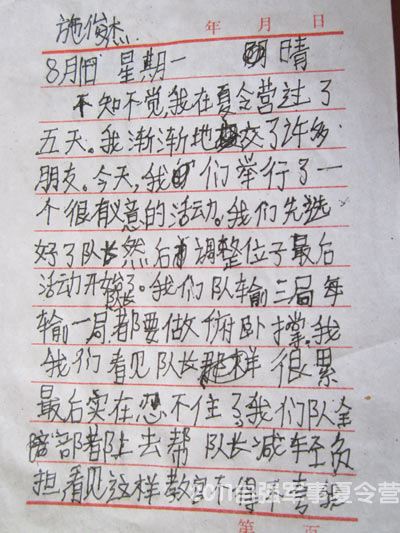 施俊杰
年 月 日
8月 日 星期一 晴
不知不觉,我在夏令营过了
五天。我渐渐地交了许多
朋友。今天,我们举行了一
个很有议意的活动。我们先选
好了队长然后调整位子最后
活动开始了。我们队输三局每
输一局队长都要做俯卧撑。我
我们看见队长那样很累
最后实在忍不住了我们队全
部都上去帮队长减轻负
担看见这样教官
2011自强军事夏令营
第 页